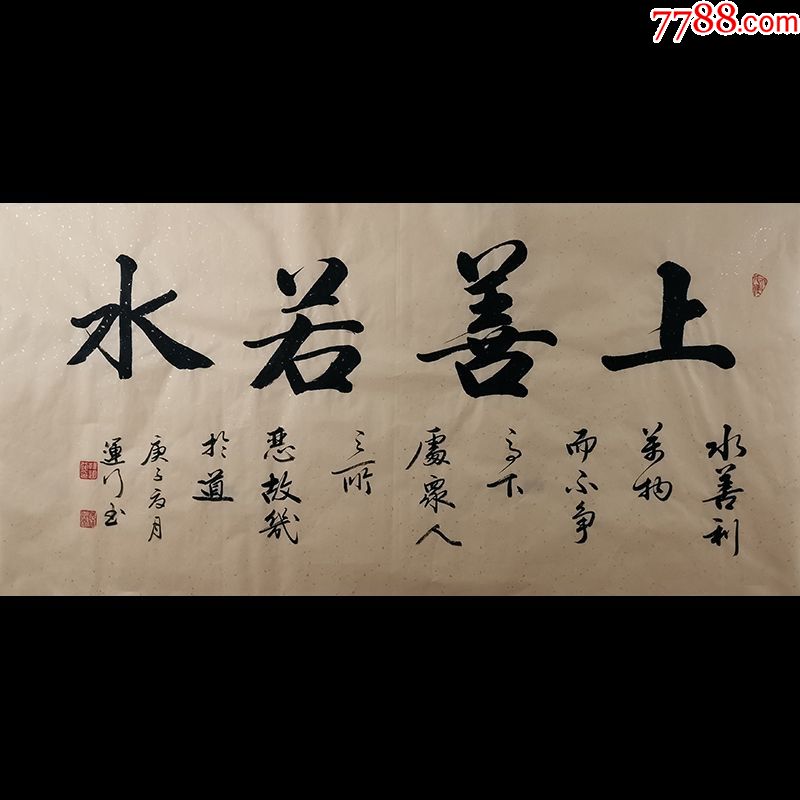 7788.com
上善若水
水善利
萬物
而不争
下
處眾人
之所
惡故幾
於道
庚子夏月
運行书